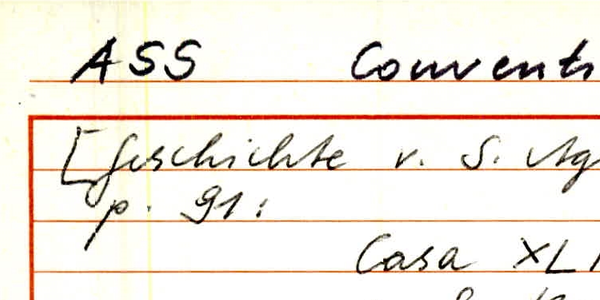 ASS Conventi
[Geschichte v. S. Ag
p. 91:
Casa XLI